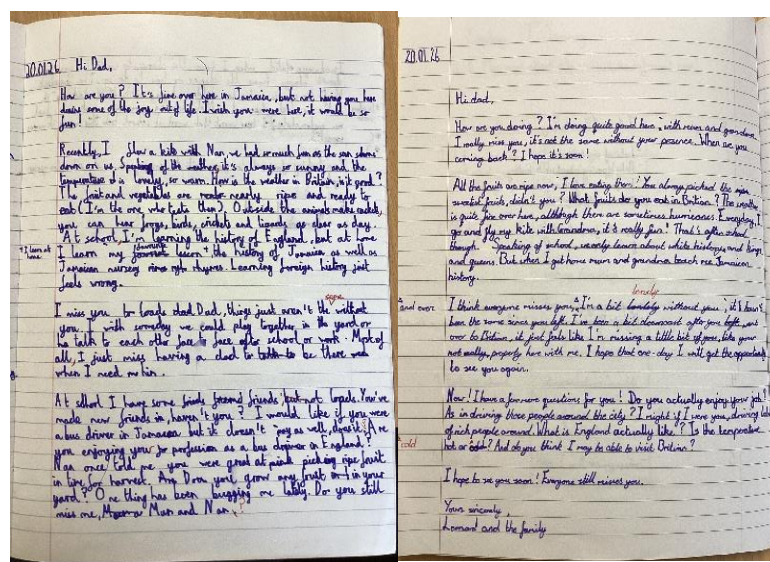 20.01.26 Hi Dad,
How are you? It's fine over here in Jamaica, but not having you here
takes some of the joy out of life. I wish you were here, it would be so
fun!
Recently, I flew a kite with Nan, we had so much fun as the sun shone
down on us. Speaking of the weather, it's always so sunny and the
temperature is lovely, so warm. How is the weather in Britain, is it good?
The fruit and vegetables are nearly ripe and ready to
eat (I'm the one who tests them). Outside the animals make
you can hear frogs, birds, crickets and lizards as clear as day.
At school, I'm learning the history of England, but at home
* I learn at home
I learn the history of Jamaica as well as
Jamaican nursery rhymes. Learning foreign history just
feels wrong.
same
I miss you loads Dad, things just aren't the without
you. I wish someday we could play together in the yard or
talk to each other face to face after school or work. Most of
all, I just miss having a dad to be there
when I need him.
At school I have some friends but not loads. You've
made new friends in, haven't you? I would like if you were
a bus driver in Jamaica but it doesn't pay as well, does it? Are
you enjoying your profession as a bus driver in England?
Nan once told me you were great at picking ripe fruit
in time for harvest. Do you grow any fruit in your
yard? One thing has been bugging me lately. Do you still
miss me, Mum and Nan?
20.01.26
Hi dad,
How are you doing? I'm doing quite good here, with mum and grandma.
I really miss you, it's not the same without your presence. When are you
coming back? I hope it's soon!
All the fruits are ripe now, I love eating them! You always picked the
sweetest fruits, didn't you? What fruits do you eat in Britain? The weather
is quite fine over here, although there are sometimes hurricanes. Everyday, I
go and fly my kite with Grandma, it's really fun! That's after school
though. Speaking of school, we only learn about white history and kings
and queens. But when I get home mum and grandma teach me Jamaican
history.
lonely
I think everyone misses you, I'm a bit without you, it hasn't
been the same since you left. I've been a bit downcast after you left,
* and over
over to Britain, it just feels like I'm missing a little bit of you, like your
not really, properly here with me. I hope that one-day I will get the opportunity
to see you again.
Now! I have a few more questions for you! Do you actually enjoy your job?
As in driving those people around the city? I might if I were you, driving
of rich people around. What is England actually like? Is the temperature
* cold
hot or And do you think I may be able to visit Britain?
I hope to see you soon! Everyone still misses you.
Yours sincerely,
and the family